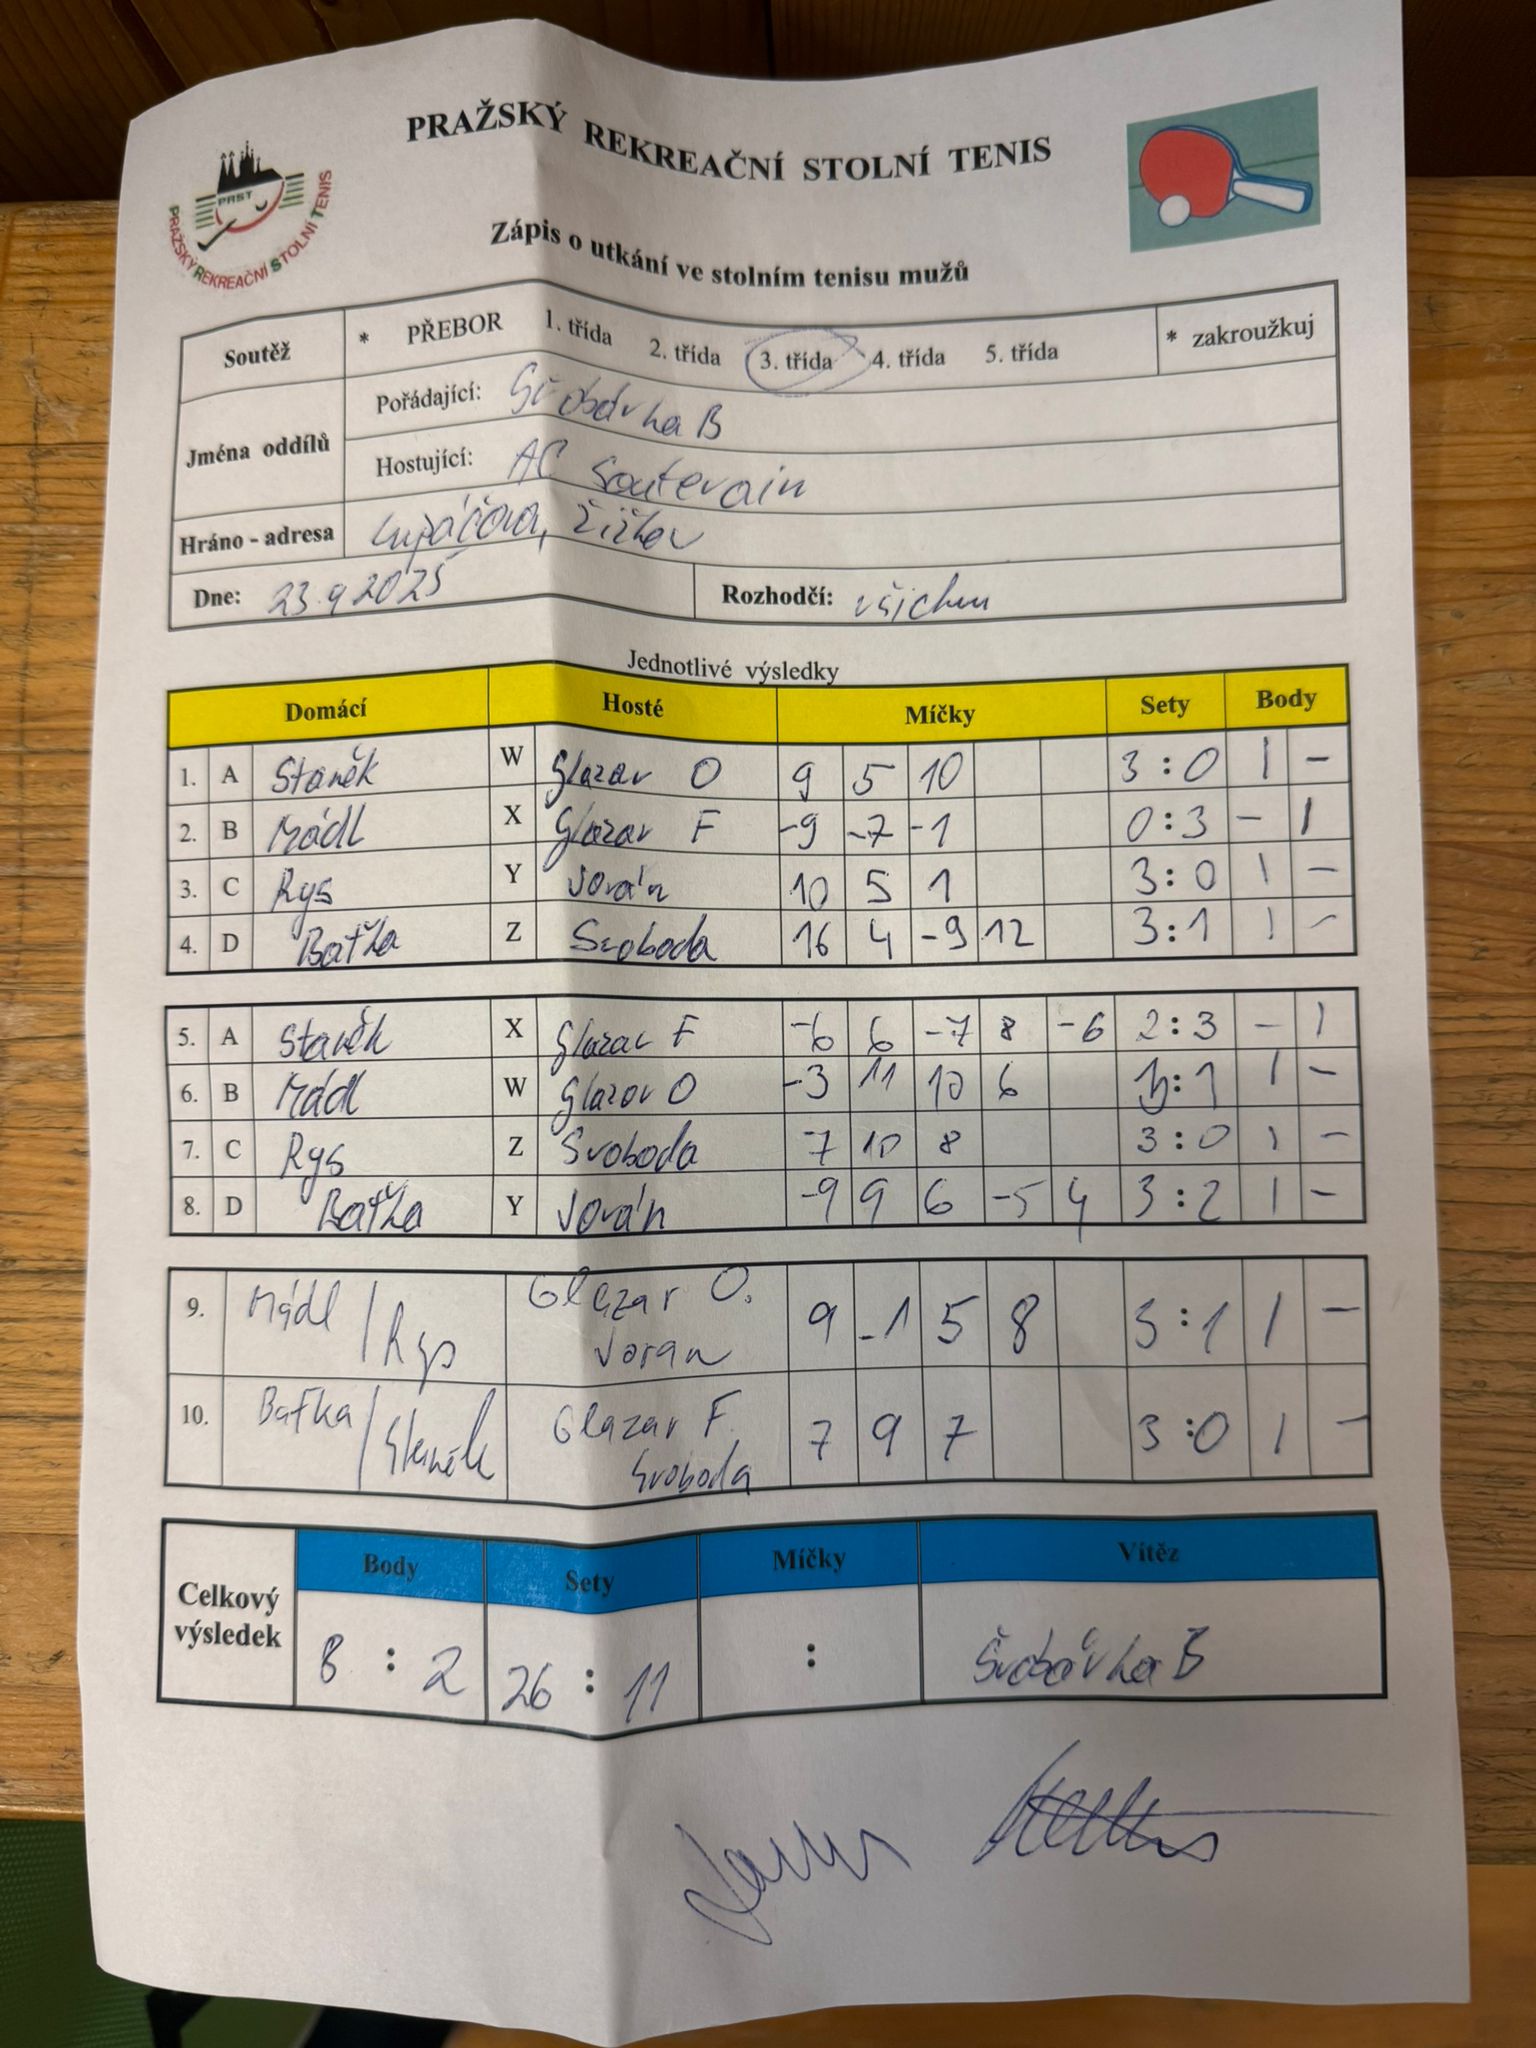 PRAŽSKÝ REKREAČNÍ STOLNÍ TENIS
PRST
PRAŽSKÝ REKREAČNÍ STOLNÍ TENIS
Zápis o utkání ve stolním tenisu mužů
Soutěž * PŘEBOR 1. třída 2. třída 3. třída 4. třída 5. třída * zakroužkuj
Jména oddílů
Pořádající: Švobárka B
Hostující: AC Souterain
Hráno - adresa Lupáčova, Žižkov
Dne: 23.9 2025 Rozhodčí: všichni
Jednotlivé výsledky
Domácí Hosté Míčky Sety Body
1. A Staněk W Glazar O 9 5 10 3:0 1 -
2. B Mádl X Glazar F -9 -7 -1 0:3 - 1
3. C Rys Y Jorán 10 5 1 3:0 1 -
4. D Baťka Z Svoboda 16 4 -9 12 3:1 1 -
5. A Staněk X Glazar F -6 6 -7 8 -6 2:3 - 1
6. B Mádl W Glazar O -3 11 10 6 3:1 1 -
7. C Rys Z Svoboda 7 10 8 3:0 1 -
8. D Baťka Y Jorán -9 9 6 -5 4 3:2 1 -
9. Mádl / Rys Glazar O. Joran 9 -1 5 8 3:1 1 -
10. Baťka / Staněk Glazar F. Svoboda 7 9 7 3:0 1 -
Celkový výsledek
Body Sety Míčky Vítěz
8 : 2 26 : 11 : Švobárka B